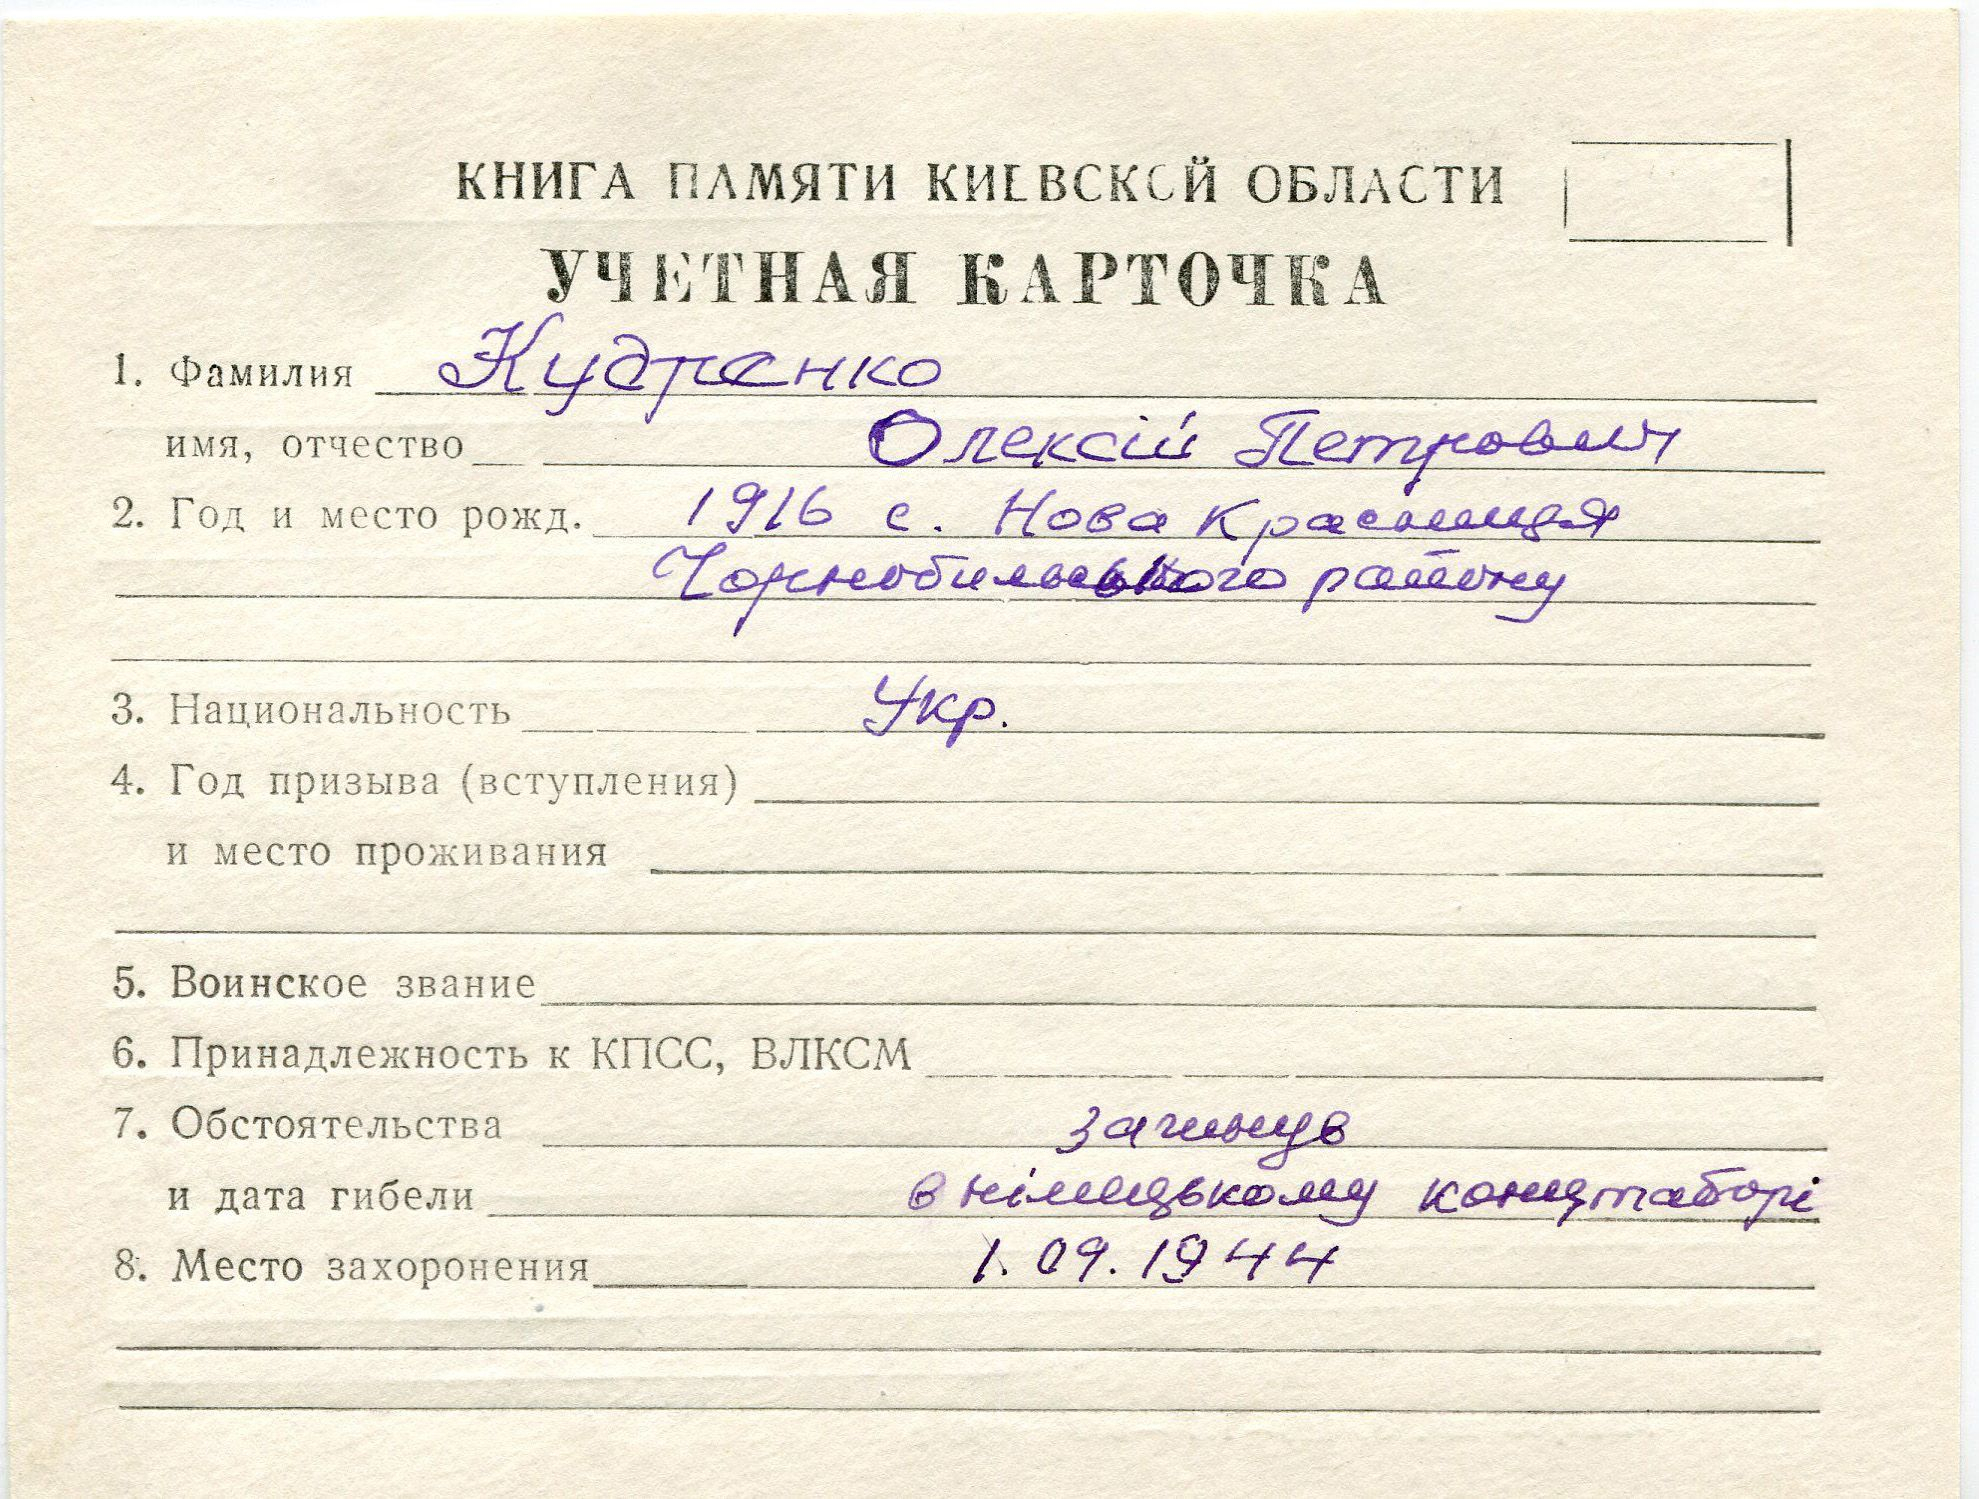 КНИГА ПАМЯТИ КИЕВСКОЙ ОБЛАСТИ
УЧЕТНАЯ КАРТОЧКА
1. Фамилия Кудренко
имя, отчество Олексій Петрович
2. Год и место рожд. 1916 с. Нова Красниця
Чорнобильського району
3. Национальность Укр.
4. Год призыва (вступления)
и место проживания
5. Воинское звание
6. Принадлежность к КПСС, ВЛКСМ
7. Обстоятельства загинув
и дата гибели в німецькому концтаборі
8. Место захоронения 1.09.1944